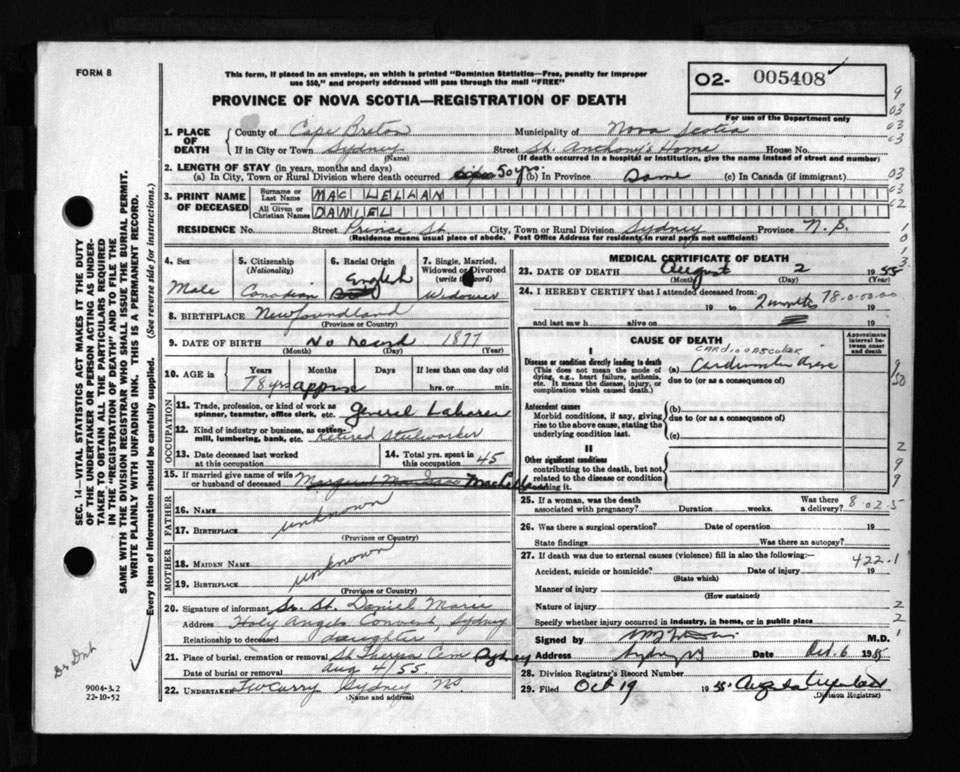 FORM 8
This form, if placed in an envelope, on which is printed "Dominion Statistics—Free, penalty for improper
use $50," and properly addressed will pass through the mail "FREE"
02- 005408
For use of the Department only
PROVINCE OF NOVA SCOTIA—REGISTRATION OF DEATH
1. PLACE OF DEATH County of Cape Breton Municipality of Nova Scotia
If in City or Town Sydney Street St. Anthony's Home House No.
(Name) (If death occurred in a hospital or institution, give the name instead of street and number)
2. LENGTH OF STAY (in years, months and days)
(a) In City, Town or Rural Division where death occurred 50 yrs. (b) In Province Same (c) In Canada (if immigrant)
3. PRINT NAME OF DECEASED Surname or Last Name MAC LELLAN
All Given or Christian Names DANIEL
RESIDENCE No. Street Prince St. City, Town or Rural Division Sydney Province N.S.
(Residence means usual place of abode. Post Office Address for residents in rural parts not sufficient)
4. Sex Male
5. Citizenship (Nationality) Canadian
6. Racial Origin English
7. Single, Married, Widowed or Divorced (write the word) Widower
8. BIRTHPLACE Newfoundland
(Province or Country)
9. DATE OF BIRTH No record 1877
(Month) (Day) (Year)
10. AGE in Years Months Days If less than one day old
78 yrs approx hrs. or min.
OCCUPATION
11. Trade, profession, or kind of work as spinner, teamster, office clerk, etc. General Laborer
12. Kind of industry or business, as cotton-mill, lumbering, bank, etc. Retired steelworker
13. Date deceased last worked at this occupation
14. Total yrs. spent in this occupation 45
15. If married give name of wife or husband of deceased Margaret
FATHER
16. NAME unknown
17. BIRTHPLACE
(Province or Country)
MOTHER
18. MAIDEN NAME unknown
19. BIRTHPLACE
(Province or Country)
20. Signature of informant Sr. St. Daniel Marie
Address Holy Angels Convent, Sydney
Relationship to deceased daughter
21. Place of burial, cremation or removal St Theresa Cem Sydney
Date of burial or removal Aug 4/55
22. UNDERTAKER T W Curry Sydney NS
(Name and address)
MEDICAL CERTIFICATE OF DEATH
23. DATE OF DEATH August 2 1955
(Month) (Day) (Year)
24. I HEREBY CERTIFY that I attended deceased from:
19 to 2 months 19 78-0-00-00
and last saw h alive on 19
CAUSE OF DEATH
Approximate interval between onset and death
I
Disease or condition directly leading to death
(This does not mean the mode of dying, e.g., heart failure, asthenia, etc. It means the disease, injury, or complication which caused death.)
CARDIOVASCULAR
(a)
due to (or as a consequence of)
Antecedent causes
Morbid conditions, if any, giving rise to the above cause, stating the underlying condition last.
(b)
due to (or as a consequence of)
(c)
II
Other significant conditions
contributing to the death, but not related to the disease or condition causing it.
25. If a woman, was the death associated with pregnancy? Duration weeks. Was there a delivery? 8-02-5
26. Was there a surgical operation? Date of operation 19
State findings Was there an autopsy?
27. If death was due to external causes (violence) fill in also the following:
422-1
Accident, suicide or homicide? Date of injury 19
(State which)
Manner of injury
(How sustained)
Nature of injury
Specify whether injury occurred in industry, in home, or in public place
Signed by M.D.
Address Sydney NS Date Oct. 6 1955
28. Division Registrar's Record Number
29. Filed Oct 19 1955
(Division Registrar)
SEC. 14—VITAL STATISTICS ACT MAKES IT THE DUTY
OF THE UNDERTAKER OR PERSON ACTING AS UNDER-
TAKER TO OBTAIN ALL THE PARTICULARS REQUIRED
IN THE "REGISTRATION OF DEATH" AND TO FILE THE
SAME WITH THE DIVISION REGISTRAR WHO SHALL ISSUE THE BURIAL PERMIT.
WRITE PLAINLY WITH UNFADING INK. THIS IS A PERMANENT RECORD.
Every item of information should be carefully supplied. (See reverse side for instructions.)
9004-3.2
22-10-52